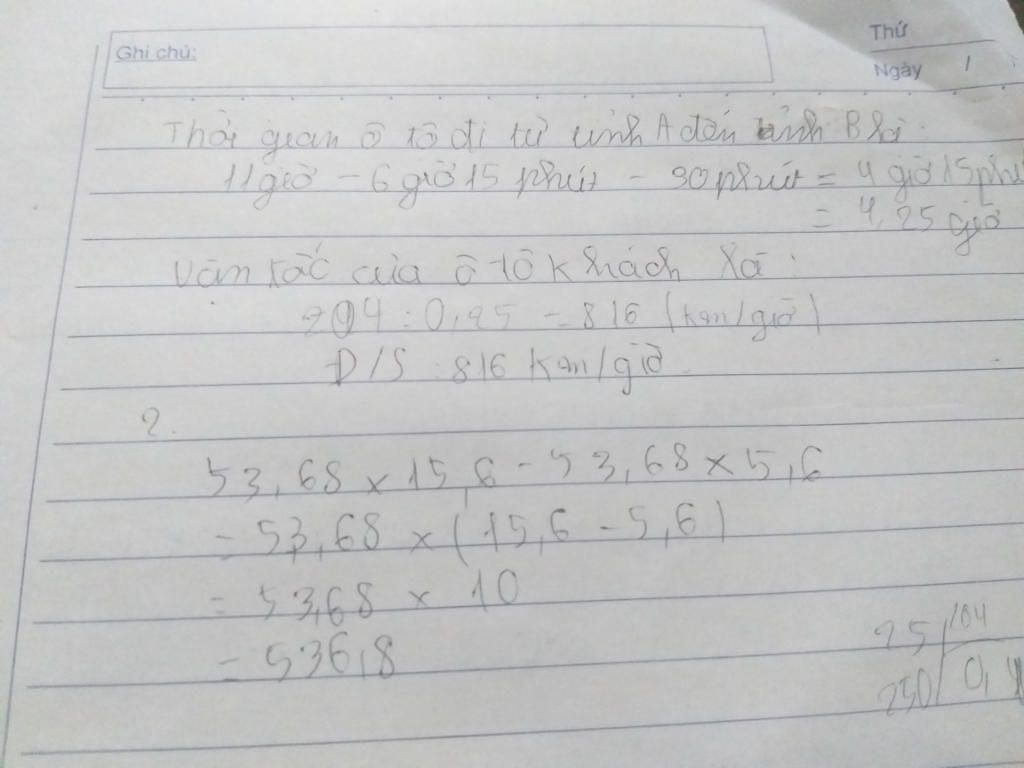 Ghi chú:
Thứ
Ngày 1
Thời gian ô tô đi từ tỉnh A đến tỉnh B là:
11 giờ - 6 giờ 15 phút - 30 phút = 4 giờ 15 phú
= 4,25 giờ
Vận tốc của ô tô khách là:
204 : 0,25 = 816 (km/giờ)
Đ/S : 816 km/giờ
2.
53,68 x 15,6 - 53,68 x 5,6
= 53,68 x (15,6 - 5,6)
= 53,68 x 10
= 536,8
25 204
250 0,